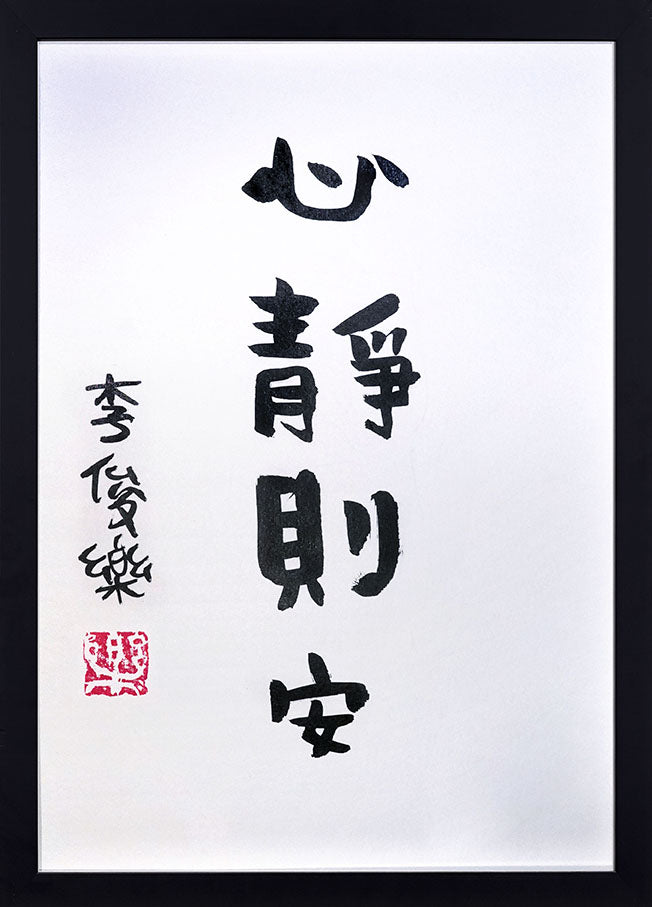 心靜則安
李俊樂
樂